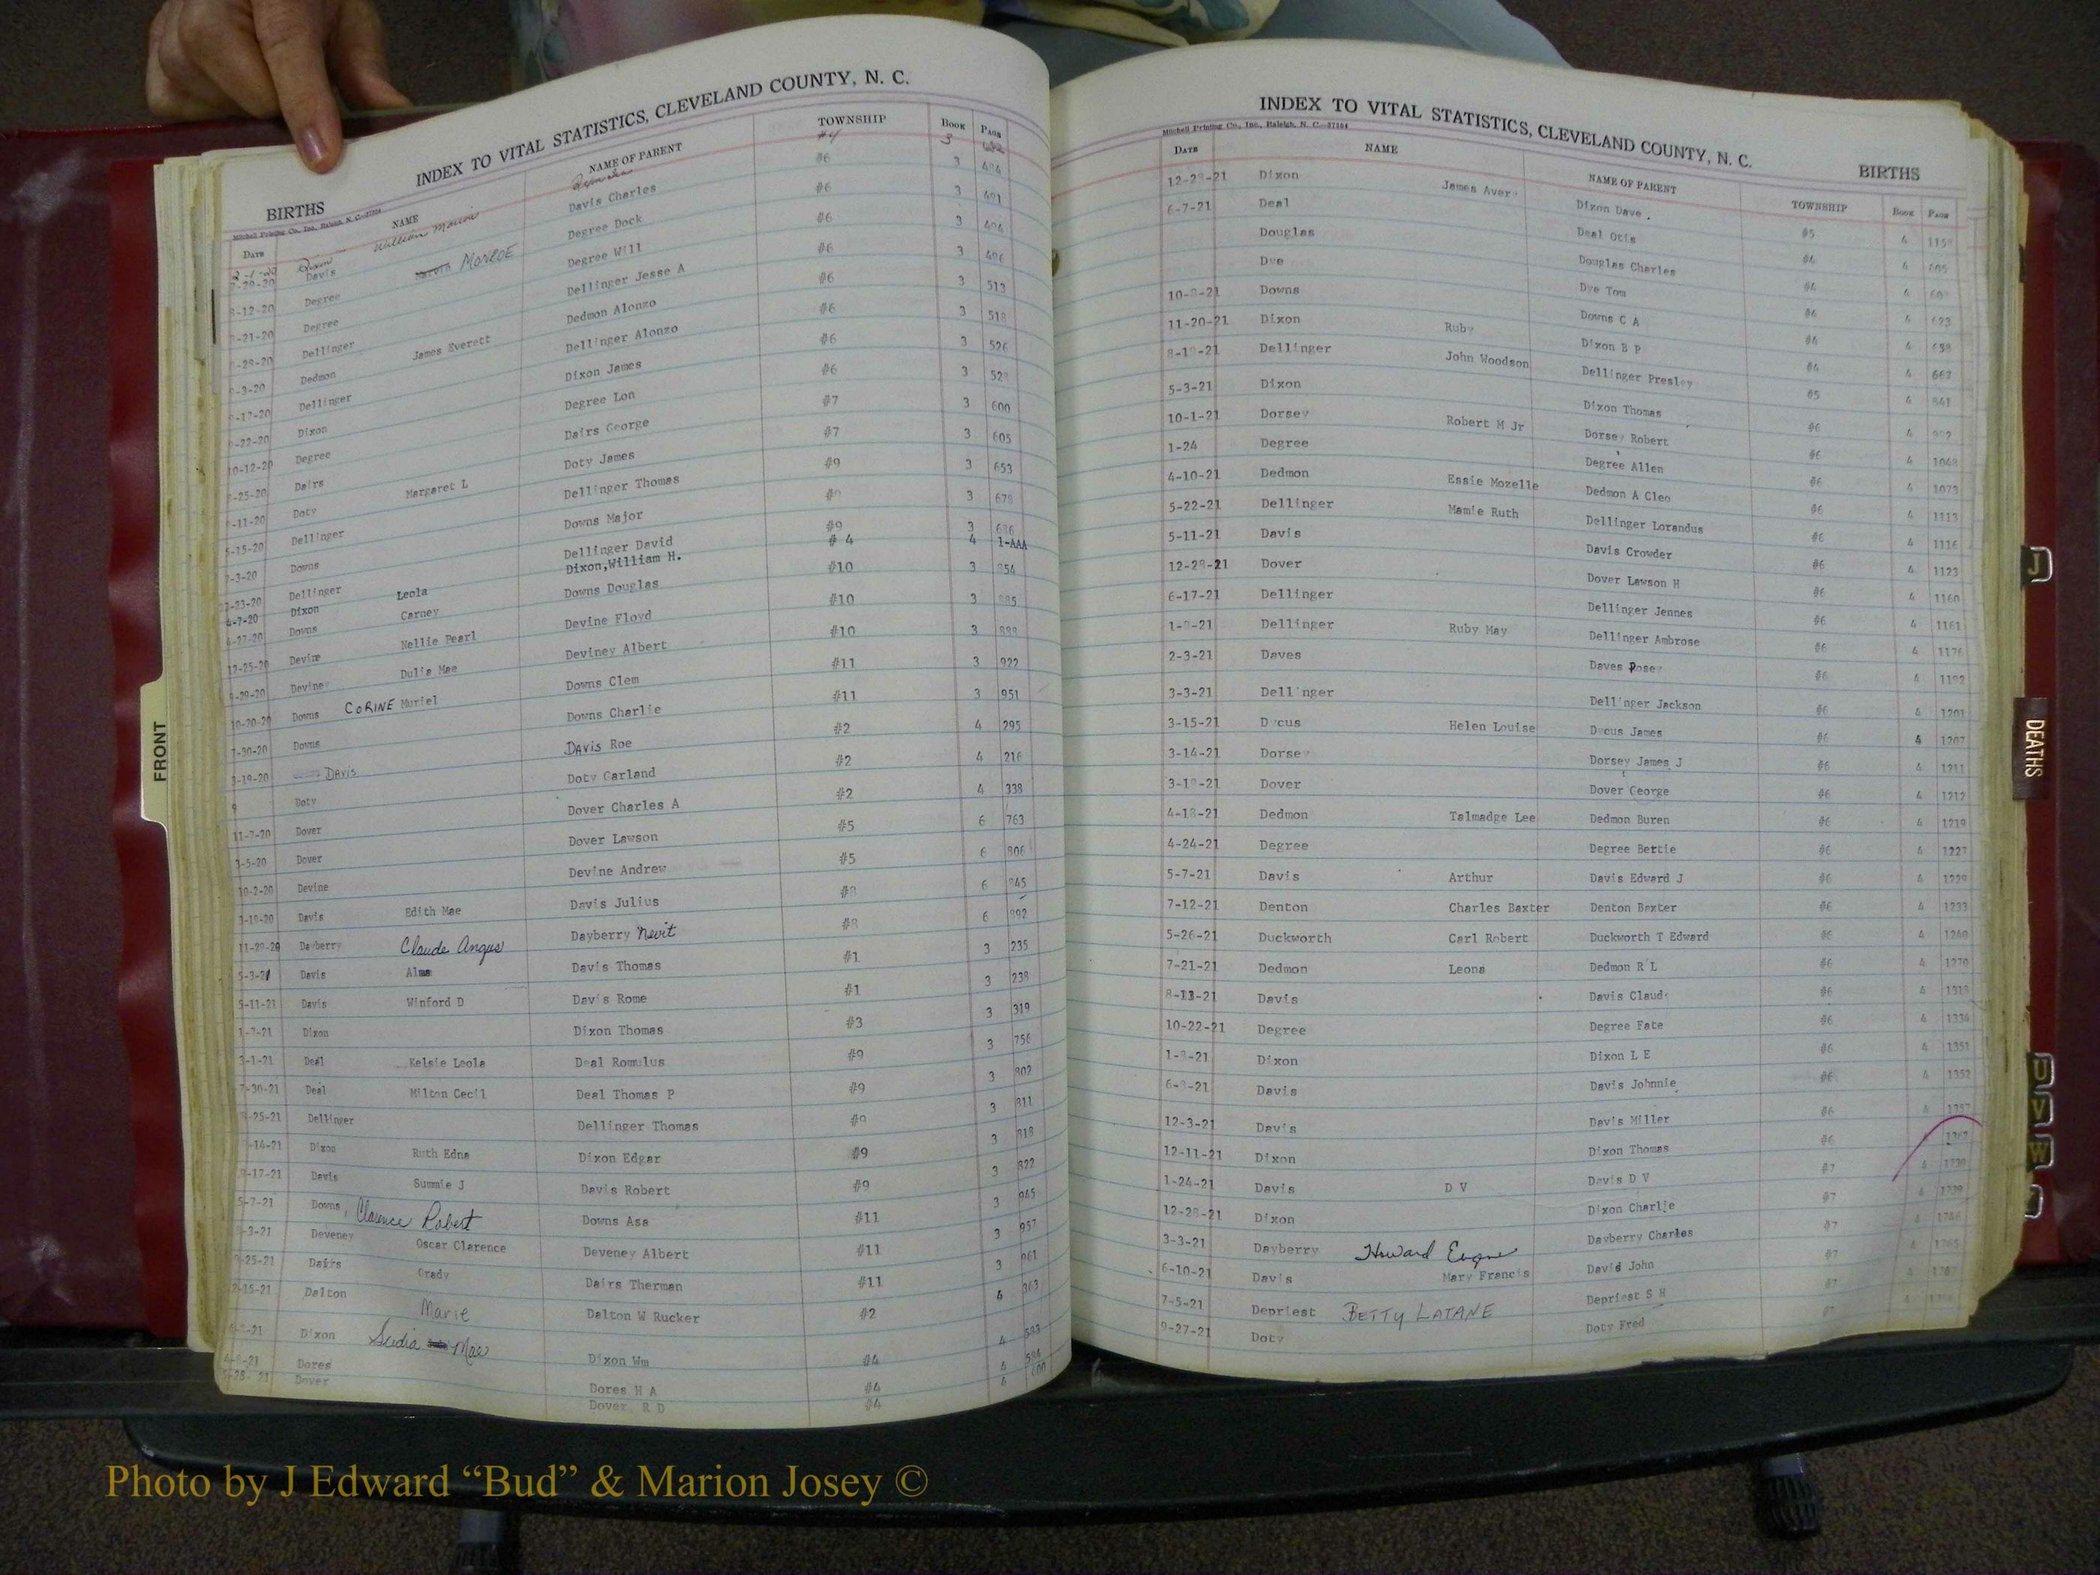 INDEX TO VITAL STATISTICS, CLEVELAND COUNTY, N. C.
BIRTHS
Mitchell Printing Co., Inc., Raleigh, N. C.
DATE NAME NAME OF PARENT TOWNSHIP BOOK PAGE
2-1-20 Dixon William Marion #4 3
-29-20 Davis MONROE Davis Charles #6 3 484
-12-20 Degree Degree Dock #6 3 491
-21-20 Degree Degree Will #6 3 494
-29-20 Dellinger James Everett Dellinger Jesse A #6 3 496
-3-20 Dedmon Dedmon Alonzo #6 3 513
-17-20 Dellinger Dellinger Alonzo #6 3 518
-22-20 Dixon Dixon James #6 3 526
10-12-20 Degree Degree Lon #6 3
-25-20 Dairs Dairs George #7 3 600
-11-20 Doty Margaret L Doty James #7 3 605
5-15-20 Dellinger Dellinger Thomas #9 3 653
-3-20 Downs Downs Major 3 679
-23-20 Dellinger Leola Dellinger David #9 3 686
4-7-20 Dixon Carney Dixon, William H. # 4 4 1-AAA
4-27-20 Downs Nellie Pearl Downs Douglas #10 3 854
12-25-20 Devine Dulia Mae Devine Floyd #10 3
-29-20 Deviney Deviney Albert #10 3
10-20-20 Downs CORINE Muriel Downs Clem #11 3 922
-30-20 Downs Downs Charlie #11 3 951
3-19-20 DAVIS DAVIS Roe #2 4 295
9 Doty Doty Garland #2 4 216
11-7-20 Dover Dover Charles A #2 4 338
3-5-20 Dover Dover Lawson #5 6 763
10-2-20 Devine Devine Andrew #5 6 806
3-19-20 Davis Edith Mae Davis Julius 6 845
11-29-20 Dayberry Claude Angus Dayberry Nevit 6 892
5-3-21 Davis Alma Davis Thomas #1 3 235
5-11-21 Davis Winford D Davis Rome #1 3 238
1-7-21 Dixon Dixon Thomas #3 3 319
3-1-21 Deal Kelsie Leola Deal Romulus #9 3 756
7-30-21 Deal Milton Cecil Deal Thomas P #9 3 802
-25-21 Dellinger Dellinger Thomas #9 3 811
-14-21 Dixon Ruth Edna Dixon Edgar #9 3 818
9-17-21 Davis Summie J Davis Robert #9 3 822
5-7-21 Downs, Clarence Robert Downs Asa #11 3 945
-3-21 Deveney Oscar Clarence Deveney Albert #11 3 957
-25-21 Dairs Grady Dairs Therman #11 3 961
-15-21 Dalton Marie Dalton W Rucker #2 4 363
-21 Dixon Mae Dixon Wm #4 4 583
-21 Dores Dores H A #4 4 584
-28-21 Dover Dover R D #4 4 600
INDEX TO VITAL STATISTICS, CLEVELAND COUNTY, N. C.
Mitchell Printing Co., Inc., Raleigh, N. C.—37104
BIRTHS
DATE NAME NAME OF PARENT TOWNSHIP BOOK PAGE
12-29-21 Dixon James Avery Dixon Dave #5 4
6-7-21 Deal Deal Otis #4 4
Douglas Douglas Charles #4 4
Dye Dye Tom #4 4 623
10-8-21 Downs Downs C A #4 4 658
11-20-21 Dixon Ruby Dixon B P #4 4 667
Dellinger John Woodson Dellinger Presley #5 4 841
5-3-21 Dixon Dixon Thomas #6 4
10-1-21 Dorsey Robert M Jr Dorsey Robert #6 4 1048
1-24 Degree Degree Allen #6 4 1073
4-10-21 Dedmon Essie Mozelle Dedmon A Cleo #6 4 1113
5-22-21 Dellinger Mamie Ruth Dellinger Lorandus #6 4 1116
5-11-21 Davis Davis Crowder #6 4 1123
12-28-21 Dover Dover Lawson H #6 4 1160
6-17-21 Dellinger Dellinger Jennes #6 4 1161
Dellinger Ruby May Dellinger Ambrose #6 4 1176
2-3-21 Daves Daves Posey #6 4 1192
3-3-21 Dellinger Dellinger Jackson #6 4 1201
3-15-21 Dycus Helen Louise Dycus James #6 4 1207
3-14-21 Dorsey Dorsey James J #6 4 1211
Dover Dover George #6 4 1212
4-18-21 Dedmon Talmadge Lee Dedmon Buren #6 4 1219
4-24-21 Degree Degree Bettie #6 4 1227
5-7-21 Davis Arthur Davis Edward J #6 4 1229
7-12-21 Denton Charles Baxter Denton Baxter #6 4 1233
5-26-21 Duckworth Carl Robert Duckworth T Edward #6 4 1240
7-21-21 Dedmon Leona Dedmon R L #6 4 1270
8-13-21 Davis Davis Claude #6 4 1318
10-22-21 Degree Degree Fate #6 4 1334
Dixon Dixon L E #6 4 1351
Davis Davis Johnnie #6 4 1352
12-3-21 Davis Davis Miller #6 4
12-11-21 Dixon Dixon Thomas #6
1-24-21 Davis D V Davis D V #7 4
12-28-21 Dixon Dixon Charlie #7 4
3-3-21 Dayberry Howard Eugene Dayberry Charles #7 4
6-10-21 Davis Mary Francis David John #7 4
7-5-21 Depriest BETTY LATANE Depriest S H #7 4
9-27-21 Doty Doty Fred #7
FRONT
J
DEATHS
U
V
W
Photo by J Edward “Bud” & Marion Josey ©